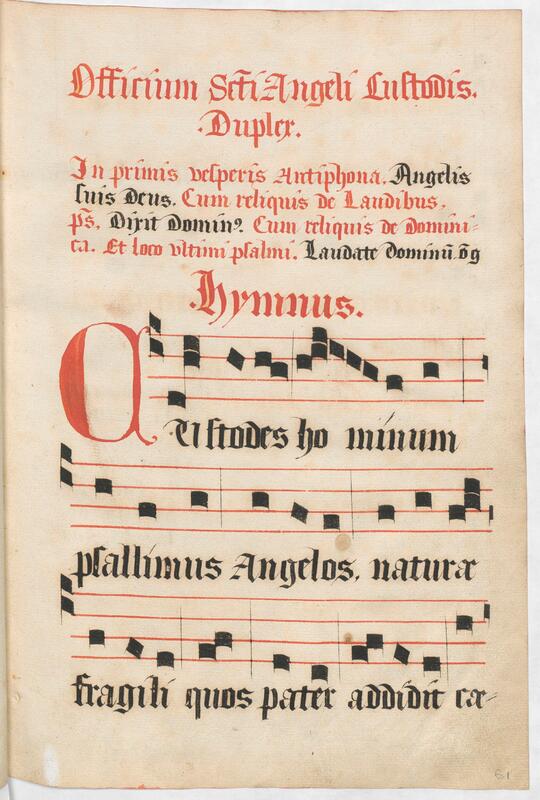 Officium Scti Angeli Custodis.
Duplex.
In primis vesperis Antiphona. Angelis
suis Deus. Cum reliquis de Laudibus.
ps. Dixit Dominꝰ. Cum reliquis de Domini=
ca. Et loco vltimi psalmi. Laudate Dominū ōg
Hymnus.
CUstodes ho minum
psallimus Angelos. naturæ
fragili quos pater addidit cæ-
61